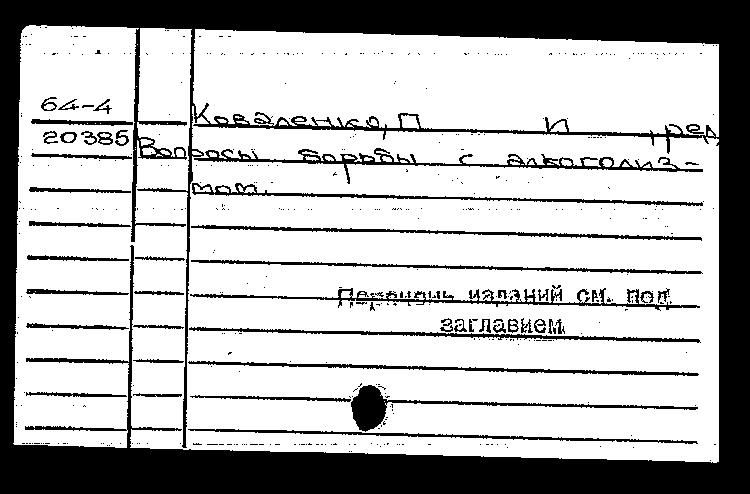 64-4
Коваленко, П И , ред
20385
Вопросы борьбы с алкоголиз-
мом.
Перечень изданий см. под
заглавием